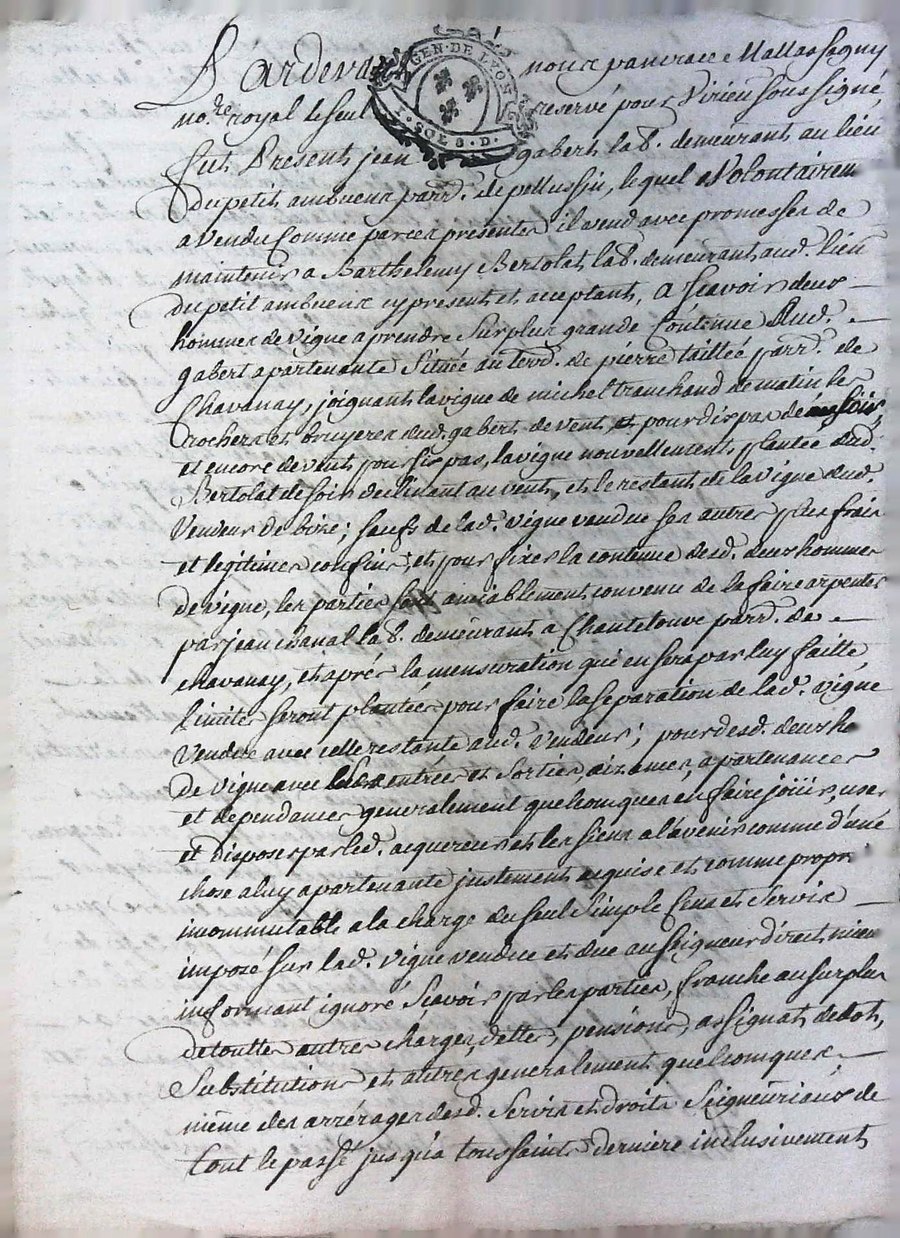 Pardevant nous pancrace Mallassagny
GEN · DE LYON
8 · D.
no.re royal le seul reservé pour Virieu soussigné
fut Present jean gabert lab.r demeurant au lieu
du petit ambueux parr.e de pellussin, lequel a Volontairem
a Vendu Comme par ces presentes il vend avec promesses de
maintenir a Barthelemy Bertolat lab.r demeurant aud. lieu
du petit ambueux cy present et acceptant, a Scavoir deux
hommes de vigne a prendre Sur plus grande Contenue Aud.
gabert apartenante Située au terr.e de pierre taillée parr.e de
Chavanay, joignant la vigne de michel tranchand de matin les
rochers et bruyeres dud. gabert de vent, et pour dix pas de soir,
et encore de vent pour six pas, la vigne nouvellement plantée dud.
Bertolat de soir declinant au vent, et le restant de la vigne dud.
Vendeur de bize; saufs de lad. vigne vendue ses autres plus frais
et legitimes confins; et pour fixer la contenue desd. deux hommes
de vigne, les parties sont amiablement convenu de la faire arpenter
par jean chanal lab.r demeurant a Chantelouve parr.e de
chavanay, et aprés la mensuration qui en sera par luy faitte
limites seront plantées pour faire la separation de lad. vigne
Vendue avec celle restante aud. Vendeur; pour desd. deux ho
de vigne avec les entrées et Sorties, aizances, apartenances
et dependances generalement quelconques en faire jöuir, user
et disposer par led. acquereur et les siens a l'avenir comme d'une
chose a luy apartenante justement acquise et comme propri
incommutable a la charge du seul Simple Cens et Servis
imposé sur lad. vigne vendue et due au Seigneur direct mieu
informant ignoré Scavoir par les parties, franche au surplus
de touttes autres charges, dettes, pensions, assignats de dot,
Substitutions et autres generalement quelconques
même des arrérages desd. Servis et droits Seigneuriaux de
tout le passé jusqu'a toussaint derniere inclusivement